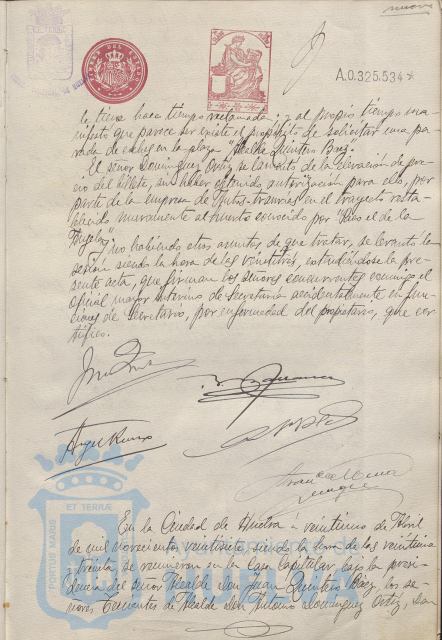 nueve
A.0.325.534*
le tiene hace tiempo reclamada; y al propio tiempo ma-
nifestó que parece ser existe el propósito de solicitar una pa-
rada de coches en la plaza "Quintero Baez".
El señor Dominguez Ortiz se lamentó de la elevación de pre-
cio del billete, sin haber obtenido autorización para ello, por
parte de la empresa de Autos-tranvias en el trayecto resta-
blecido nuevamente al puerto conocido por
Y no habiendo otros asuntos de que tratar, se levantó la
sesión siendo la hora de las veintitres, extendiéndose la pre-
sente acta, que firman los señores concurrentes conmigo el
oficial mayor interino de Secretaría accidentalmente en fun-
ciones de Secretario, por enfermedad del propietario, que cer-
tifico.
ET TERRÆ
PORTUS MARIS
En la Ciudad de Huelva á veintiuno de Abril
de mil novecientos veintisiete, siendo la hora de las veintiuna
y treinta, se reunieron en la Casa Capitular, bajo la presi-
dencia del señor Alcalde Don Juan Quintero Baez, los se-
ñores Tenientes de Alcalde Don Antonio Dominguez Ortiz, Don